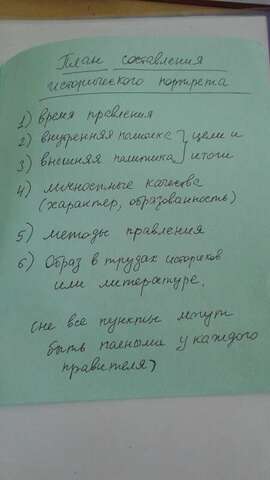 План составления
исторического портрета
1) время правления
2) внутренняя политика } цели и
3) внешняя политика } итоги
4) личностные качества
(характер, образованность)
5) методы правления
6) Образ в трудах историков
или литературе.
(не все пункты могут
быть полными у каждого
правителя)